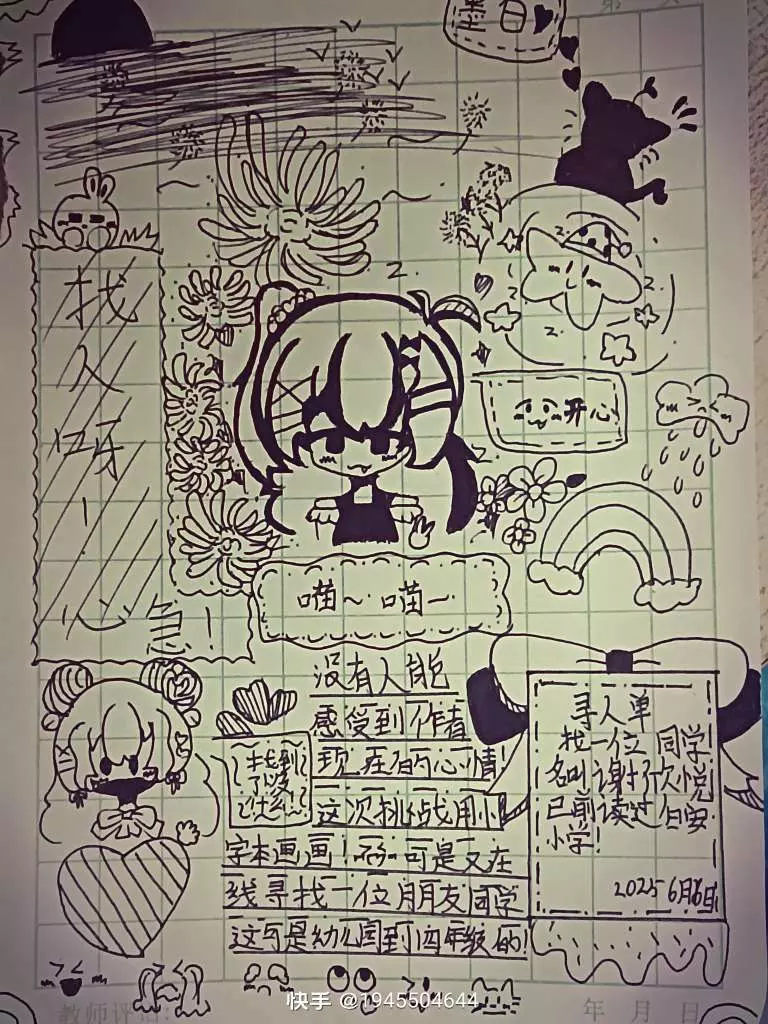 黑白
找
人
呀
!
心急!
开心
喵~喵~
没有人能
感受到作者
现在的心情!
这次挑战用小
字本画画!可是又在
线寻找一位月朋友同学
这可是幼儿园到四年级的!
找到
了以没
寻人单
找一位同学
名叫谢欣悦
已前读过白安
小学!
2025 6月16日
教师评语:
年 月 日
快手 @1945504644